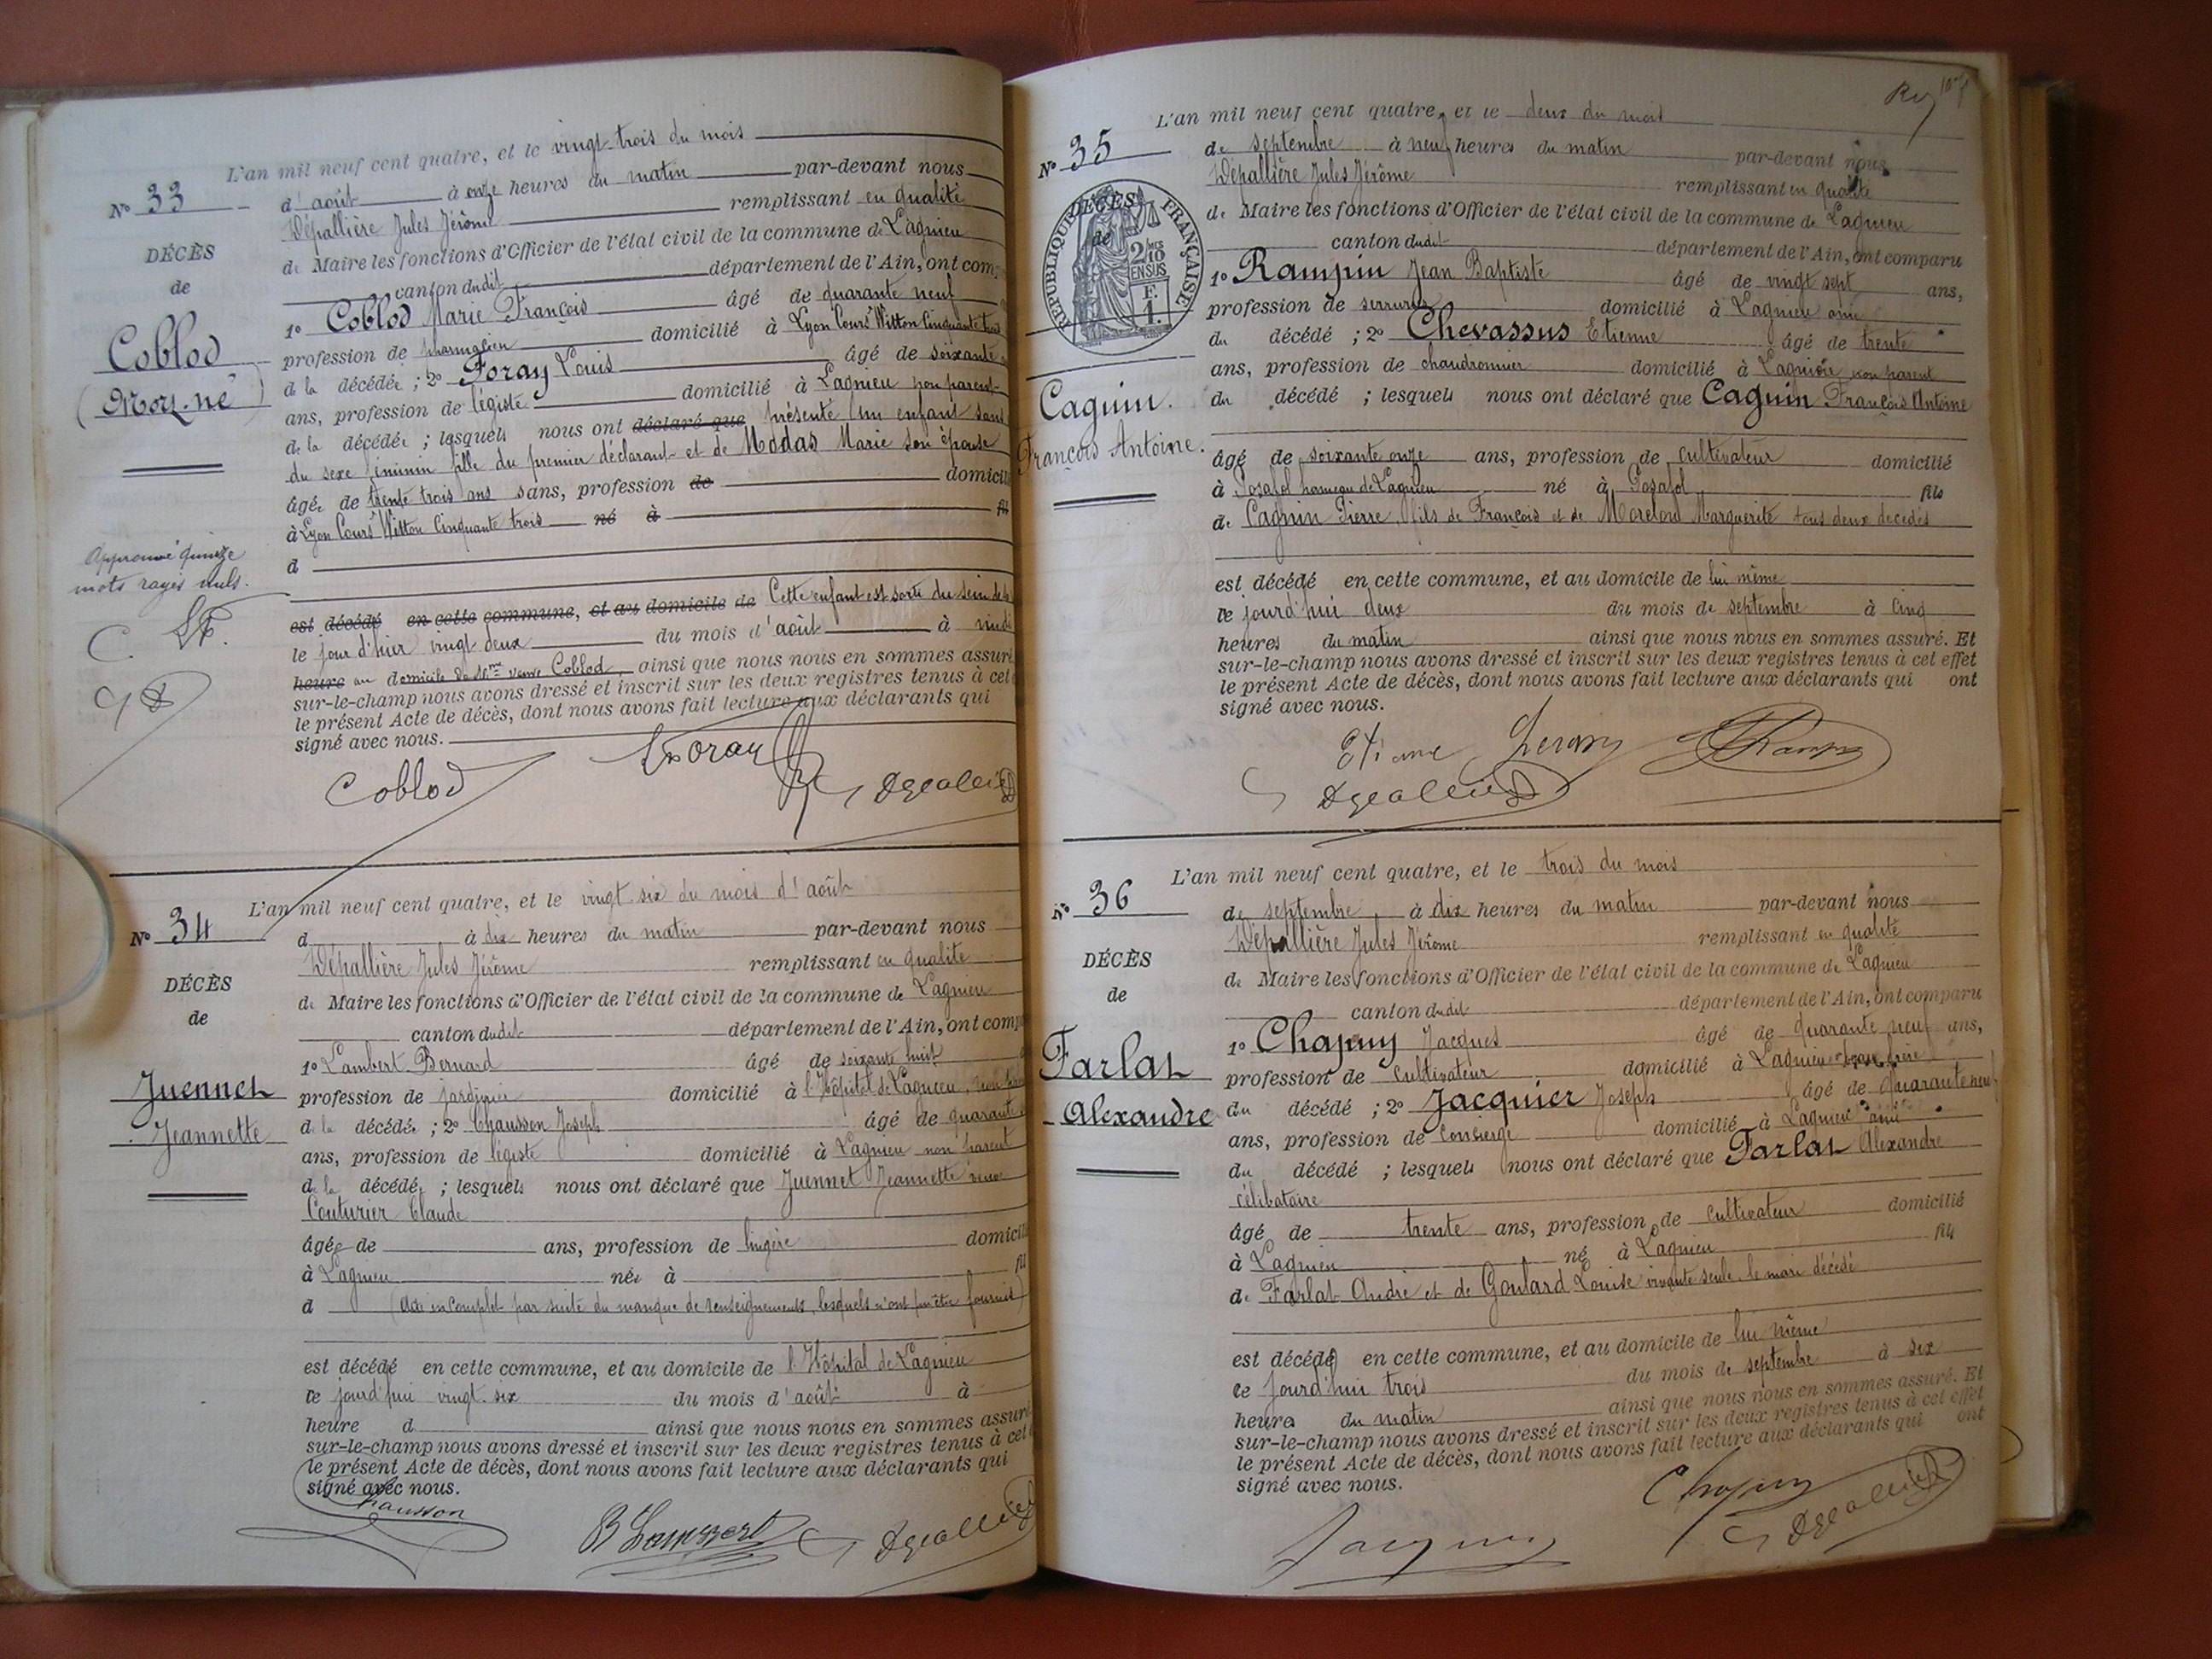 L'an mil neuf cent quatre, et le vingt-trois du mois
N° 33
d'août à onze heures du matin par-devant nous
Dépallière Jules Jérôme remplissant en qualité
de Maire les fonctions d'Officier de l'état civil de la commune de Lagnieu
canton dudit département de l'Ain, ont com
DÉCÈS
de
Coblod
(Mort-né)
1° Coblod Marie François âgé de quarante neuf
profession de pharmacien domicilié à Lyon Cours Vitton Cinquante trois
de la décédée ; 2° Foray Louis âgé de soixante
ans, profession de légiste domicilié à Lagnieu non parent
de la décédée ; lesquels nous ont déclaré que présenté un enfant sans
du sexe féminin fille du premier déclarant et de Moddas Marie son épouse
âgée de trente trois ans sans, profession de domicil
à Lyon Cours Vitton Cinquante trois né à
d
Approuvé quinze
mots rayés nuls.
est décédé en cette commune, et au domicile de Cette enfant est sorti du sein de la
le jour d'hier vingt deux du mois d'août à
heure au domicile de Mme veuve Coblod, ainsi que nous nous en sommes assuré
sur-le-champ nous avons dressé et inscrit sur les deux registres tenus à cet
le présent Acte de décès, dont nous avons fait lecture aux déclarants qui
signé avec nous.
Coblod LForay
L'an mil neuf cent quatre, et le vingt six du mois d'août
N° 34
d à dix heures du matin par-devant nous
Dépallière Jules Jérôme remplissant en qualité
de Maire les fonctions d'Officier de l'état civil de la commune de Lagnieu
canton dudit département de l'Ain, ont comp
DÉCÈS
de
Juennet
Jeannette
1° Lambert Bernard âgé de soixante huit
profession de jardinier domicilié à l'Hôpital de Lagnieu,
de la décédée ; 2° Chausson Joseph âgé de quarante
ans, profession de légiste domicilié à Lagnieu non parent
de la décédée ; lesquels nous ont déclaré que Juennet Jeannette veuve
Couturier Claude
âgée de ans, profession de lingère domicil
à Lagnieu née à fil
d (Acte incomplet par suite du manque de renseignements, lesquels n'ont pu être fournis)
est décédé en cette commune, et au domicile de l'Hôpital de Lagnieu
le jourd'hui vingt-six du mois d'août à
heure d ainsi que nous nous en sommes assuré
sur-le-champ nous avons dressé et inscrit sur les deux registres tenus à cet
le présent Acte de décès, dont nous avons fait lecture aux déclarants qui
signé avec nous.
Chausson B Lambert
L'an mil neuf cent quatre, et le deux du mois
N° 35
de septembre à neuf heures du matin par-devant nous
Dépallière Jules Jérôme remplissant en qualité
de Maire les fonctions d'Officier de l'état civil de la commune de Lagnieu
canton dudit département de l'Ain, ont comparu
DÉCÈS
de
RÉPUBLIQUE FRANÇAISE
2/10
EN SUS
F.
1.
Cagnin.
François Antoine.
1° Rampin Jean Baptiste âgé de vingt sept ans,
profession de serrurier domicilié à Lagnieu ami
du décédé ; 2° Chevassus Etienne âgé de trente
ans, profession de chaudronnier domicilié à Lagnieu non parent
du décédé ; lesquels nous ont déclaré que Cagnin François Antoine
âgé de soixante onze ans, profession de cultivateur domicilié
à Posafol hameau de Lagnieu né à Posafol fils
de Cagnin Pierre, fils de François et de Morelon Marguerite tous deux décédés
est décédé en cette commune, et au domicile de lui même
le jourd'hui deux du mois de septembre à cinq
heures du matin ainsi que nous nous en sommes assuré. Et
sur-le-champ nous avons dressé et inscrit sur les deux registres tenus à cet effet
le présent Acte de décès, dont nous avons fait lecture aux déclarants qui ont
signé avec nous.
L'an mil neuf cent quatre, et le trois du mois
N° 36
de septembre, à dix heures du matin par-devant nous
Dépallière Jules Jérôme remplissant en qualité
de Maire les fonctions d'Officier de l'état civil de la commune de Lagnieu
canton dudit département de l'Ain, ont comparu
DÉCÈS
de
Farlat
Alexandre
1° Chapuy Jacques âgé de quarante neuf ans,
profession de cultivateur domicilié à Lagnieu beau frère
du décédé ; 2° Jacquier Joseph âgé de quarante neuf
ans, profession de concierge domicilié à Lagnieu ami
du décédé ; lesquels nous ont déclaré que Farlat Alexandre
célibataire
âgé de trente ans, profession de cultivateur domicilié
à Lagnieu né à Lagnieu fils
de Farlat André et de Goulard Louise vivante seule, le mari décédé
est décédé en cette commune, et au domicile de lui même
le jourd'hui trois du mois de septembre à six
heures du matin ainsi que nous nous en sommes assuré. Et
sur-le-champ nous avons dressé et inscrit sur les deux registres tenus à cet effet
le présent Acte de décès, dont nous avons fait lecture aux déclarants qui ont
signé avec nous.
Chapuy